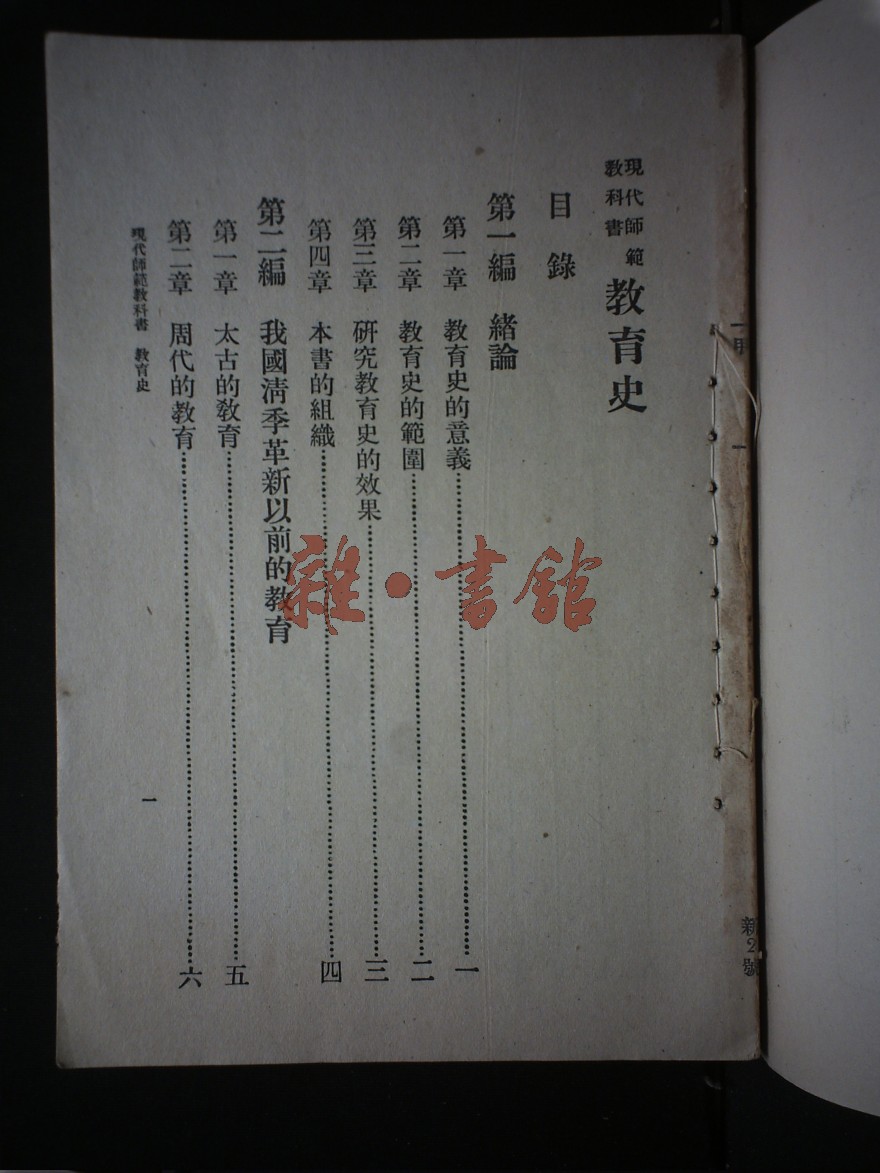 現代師範
教科書
教育史
目錄
第一編 緒論
第一章 教育史的意義……一
第二章 教育史的範圍……二
第三章 研究教育史的效果……三
第四章 本書的組織……四
第二編 我國清季革新以前的教育
第一章 太古的教育……五
第二章 周代的教育……六
現代師範教科書 教育史
一
雜·書館
一
2